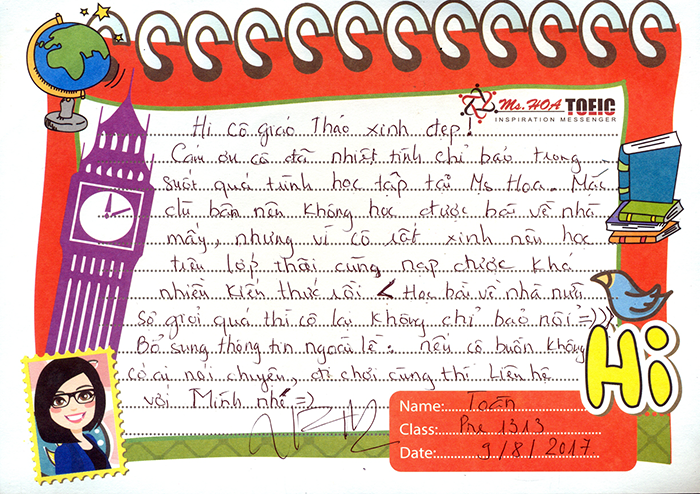 Ms. HOA TOEIC
INSPIRATION MESSENGER
Hi cô giáo Thảo xinh đẹp!
Cám ơn cô đã nhiệt tình chỉ bảo trong
suốt quá trình học tập tại Ms Hoa. Mặc
dù bận nên không học được bài về nhà
mấy, nhưng vì cô rất xinh nên học
trên lớp thôi cũng nạp được khá
nhiều kiến thức rồi < Học bài về nhà nữa
sợ giỏi quá thì cô lại không chỉ bảo nổi =)))
Bổ sung thông tin ngoài lề. nếu cô buồn không
có ai nói chuyện, đi chơi cùng thì liên hệ
với Mình nhé =)
Hi
Name: Toản
Class: Pre 1313
Date: 9/8/2017